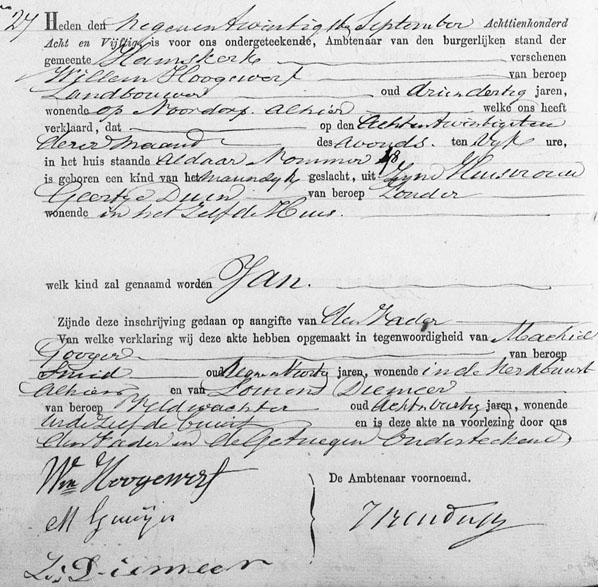 27 Heden den negenentwintigsten September Achttienhonderd
Acht en Vijftig is voor ons ondergeteekende, Ambtenaar van den burgerlijken stand der
gemeente Heemskerk verschenen
Willem Hoogewerf van beroep
Landbouwer oud driendertig jaren,
wonende op Noordorp alhier welke ons heeft
verklaard, dat op den achtentwintigsten
dezer maand des avonds ten Vyf ure,
in het huis staande aldaar Nommer 18
is geboren een kind van het mannelyk geslacht, uit Zyne Huisvrouw
Geertje Duin van beroep Zonder
wonende in het Zelfde Huis.
welk kind zal genaamd worden Jan.
Zijnde deze inschrijving gedaan op aangifte van den Vader
Van welke verklaring wij deze akte hebben opgemaakt in tegenwoordigheid van Machiel
van beroep
Smid oud jaren, wonende in de Kerkbuurt
alhier en van Diemeer
van beroep Veldwachter oud jaren, wonende
in de Zelfde buurt en is deze akte na voorlezing door ons
den Vader en de Getuigen Onderteekend
Wm Hoogewerf
De Ambtenaar voornoemd.
M
Ls Diemeer